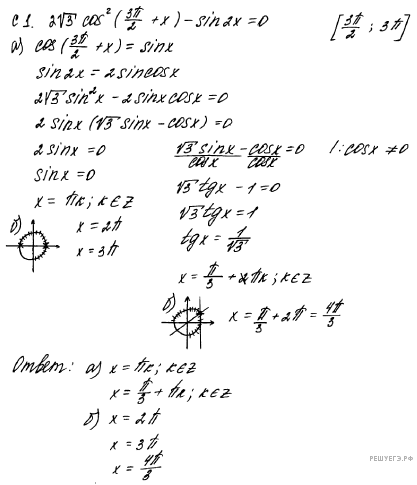 С 1. 2√3 cos²(3π/2 + x) – sin2x = 0 [3π/2 ; 3π]
а) cos(3π/2 + x) = sinx
sin2x = 2sinxcosx
2√3 sin²x – 2sinxcosx = 0
2 sinx (√3 sinx – cosx) = 0
2 sinx = 0
sinx = 0
x = πk; k∈Z
√3 sinx/cosx – cosx/cosx = 0 /: cosx ≠ 0
√3 tgx – 1 = 0
√3 tgx = 1
tgx = 1/√3
x = π/3 + πk; k∈Z
б) x = 2π
x = 3π
б) x = π/3 + 2π = 4π/3
Ответ: а) x = πk; k∈Z
x = π/3 + πk; k∈Z
б) x = 2π
x = 3π
x = 4π/3
РЕШУЕГЭ.РФ